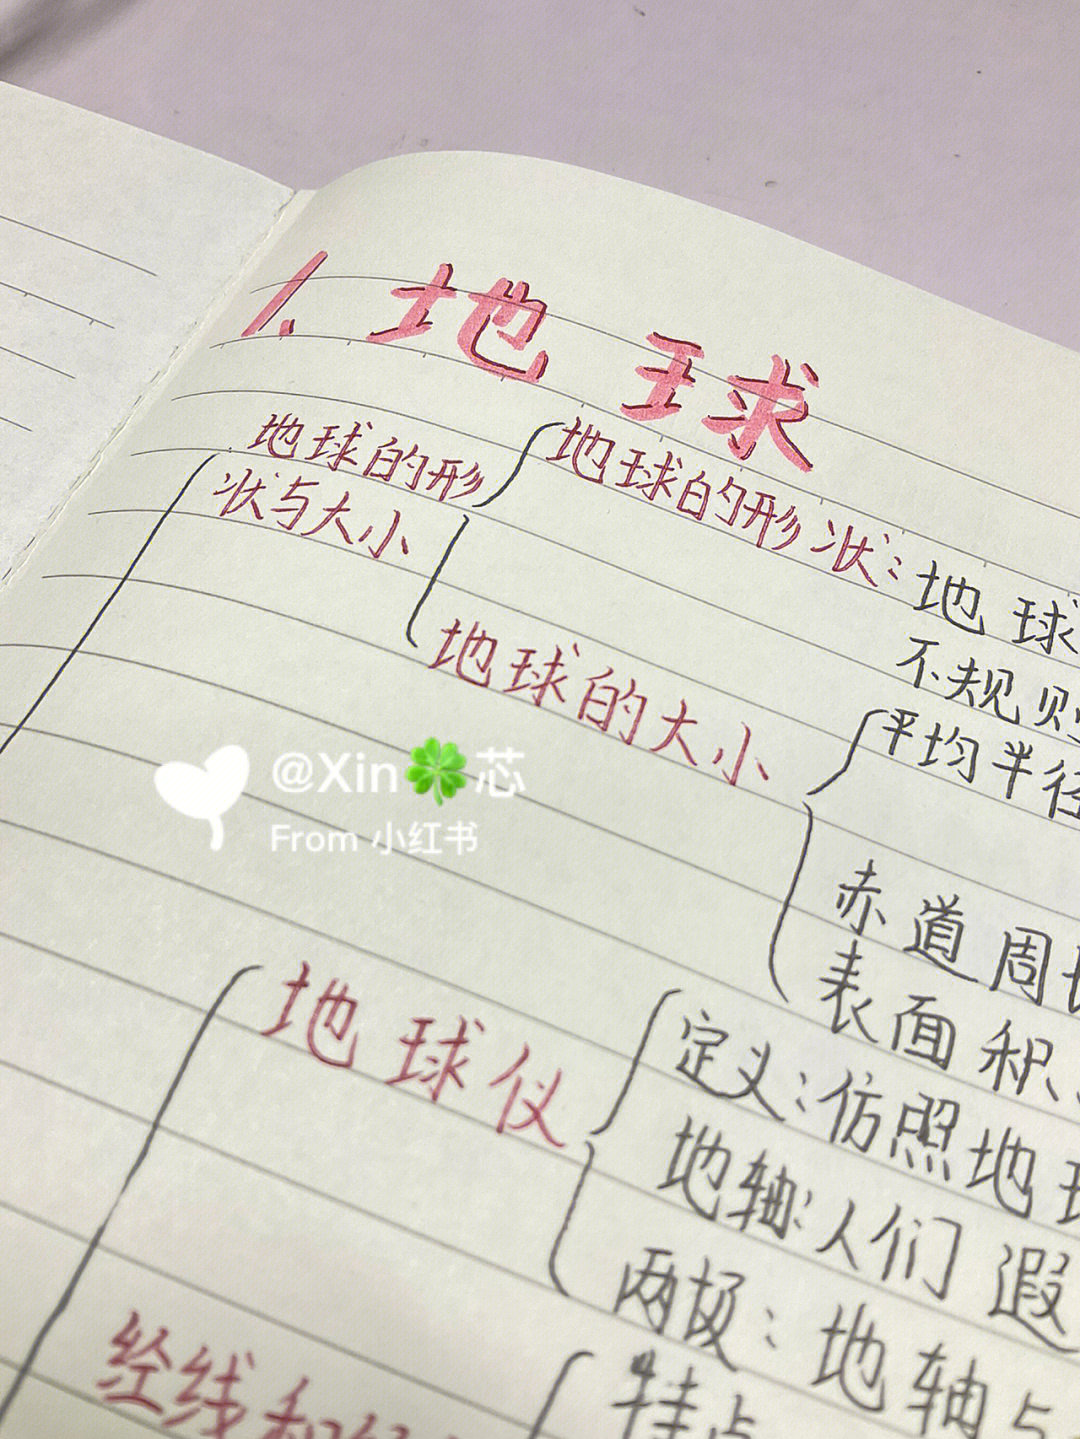 1、地球
地球的形
状与大小
地球的形状：地球
不规则
地球的大小
平均半径
赤道周长
表面积
@Xin🍀芯
From 小红书
地球仪
定义：仿照地球
地轴：人们遐
两极：地轴与
特点
经线和